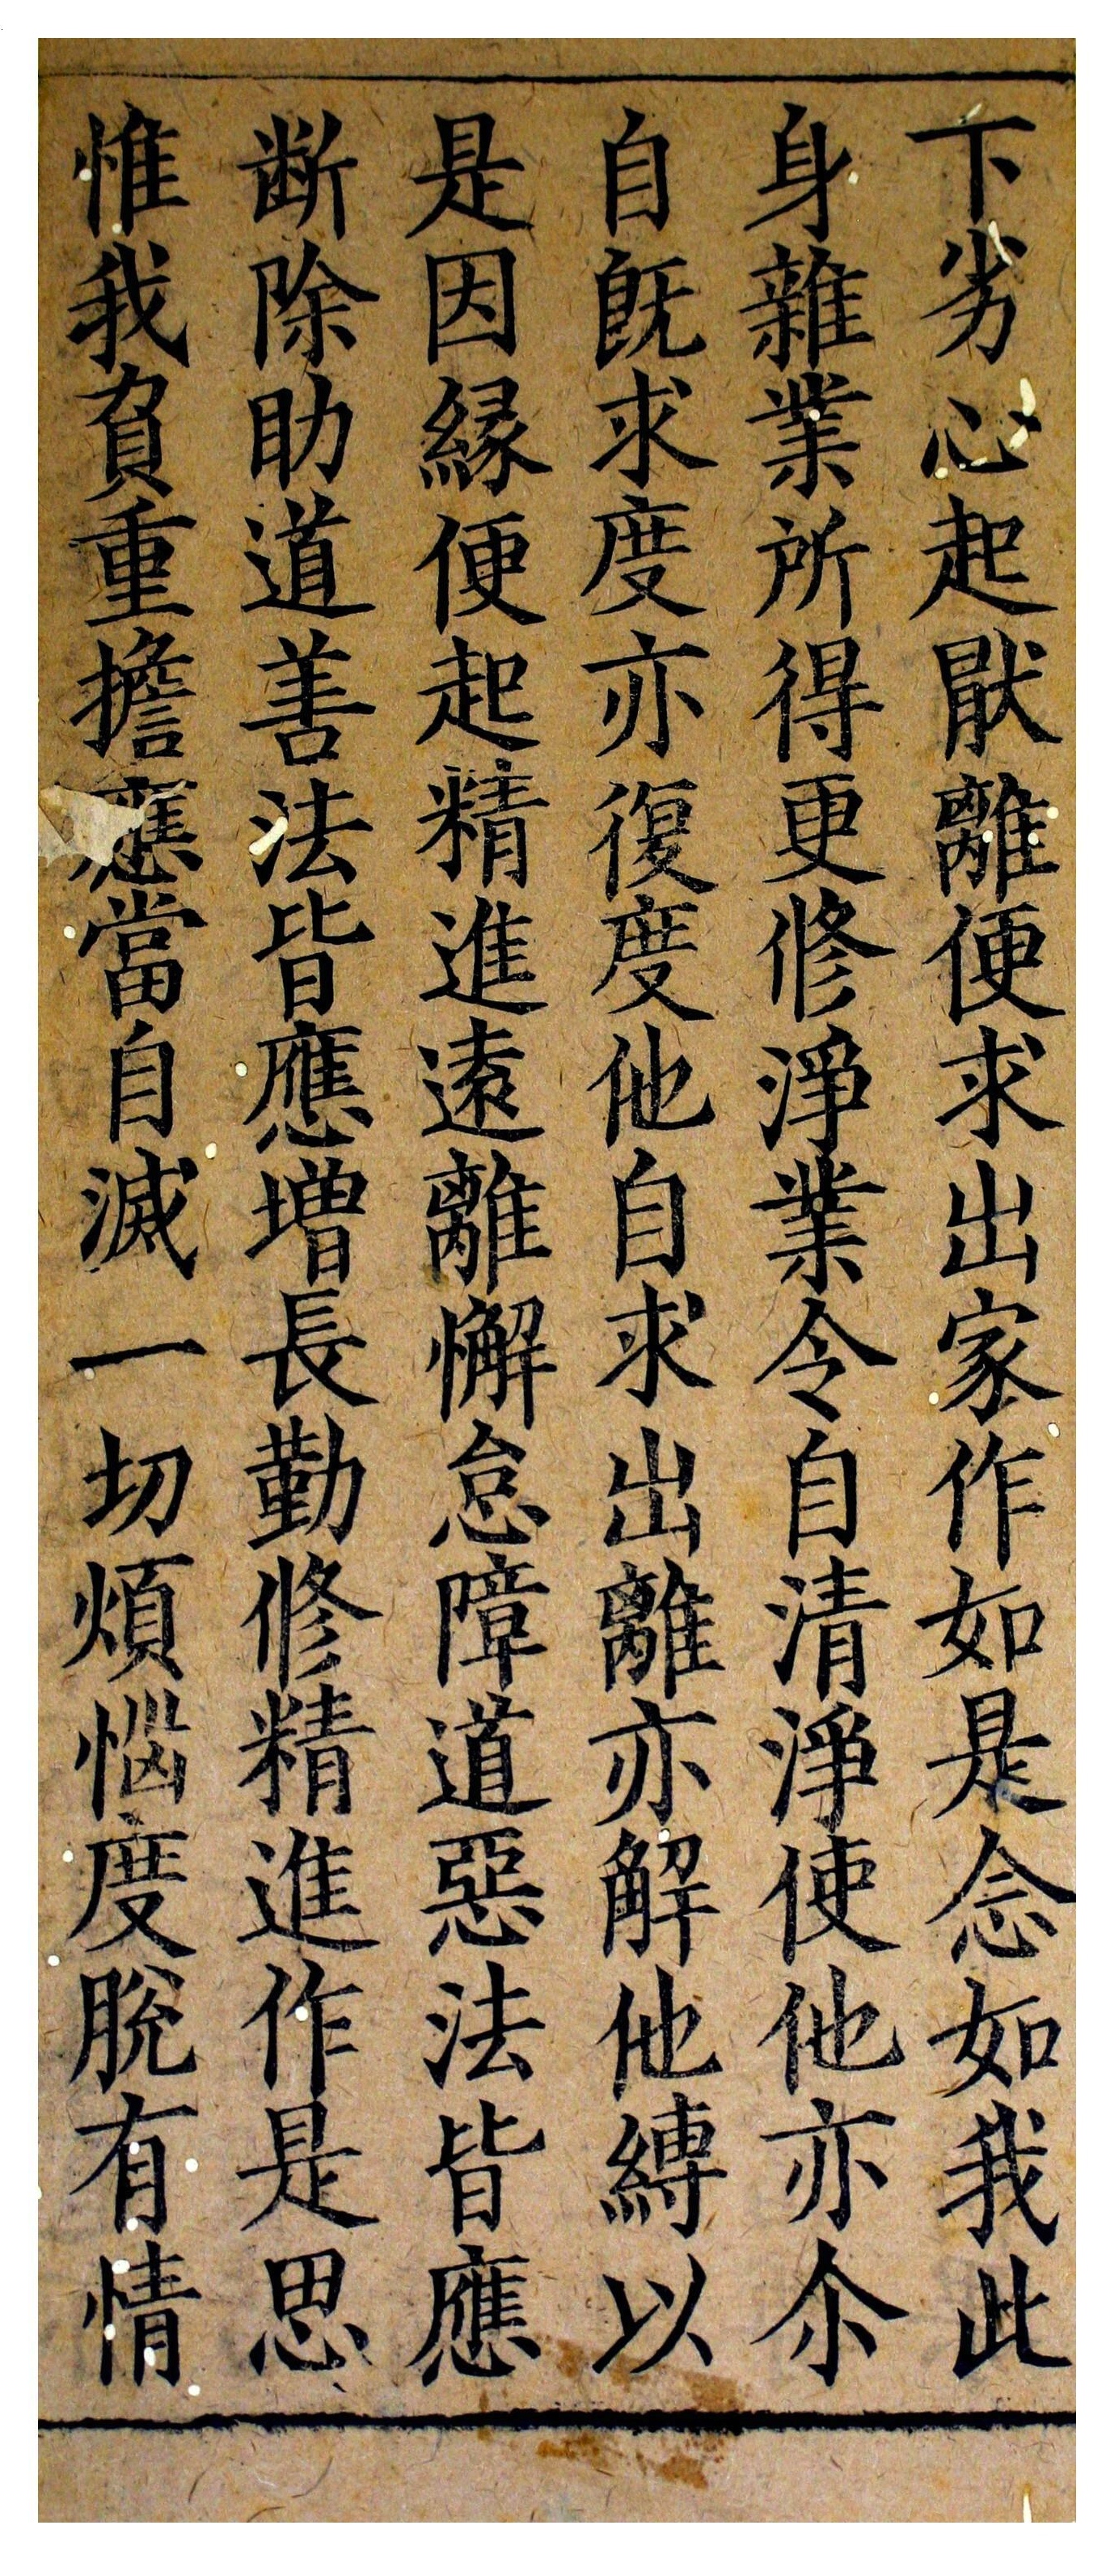 下劣心起猒離便求出家作如是念如我此
身雜業所得更修淨業令自清淨使他亦尒
自既求度亦復度他自求出離亦解他縛以
是因縁便起精進遠離懈怠障道惡法皆應
断除助道善法皆應増長勤修精進作是思
惟我負重擔應當自滅一切煩惱度脫有情